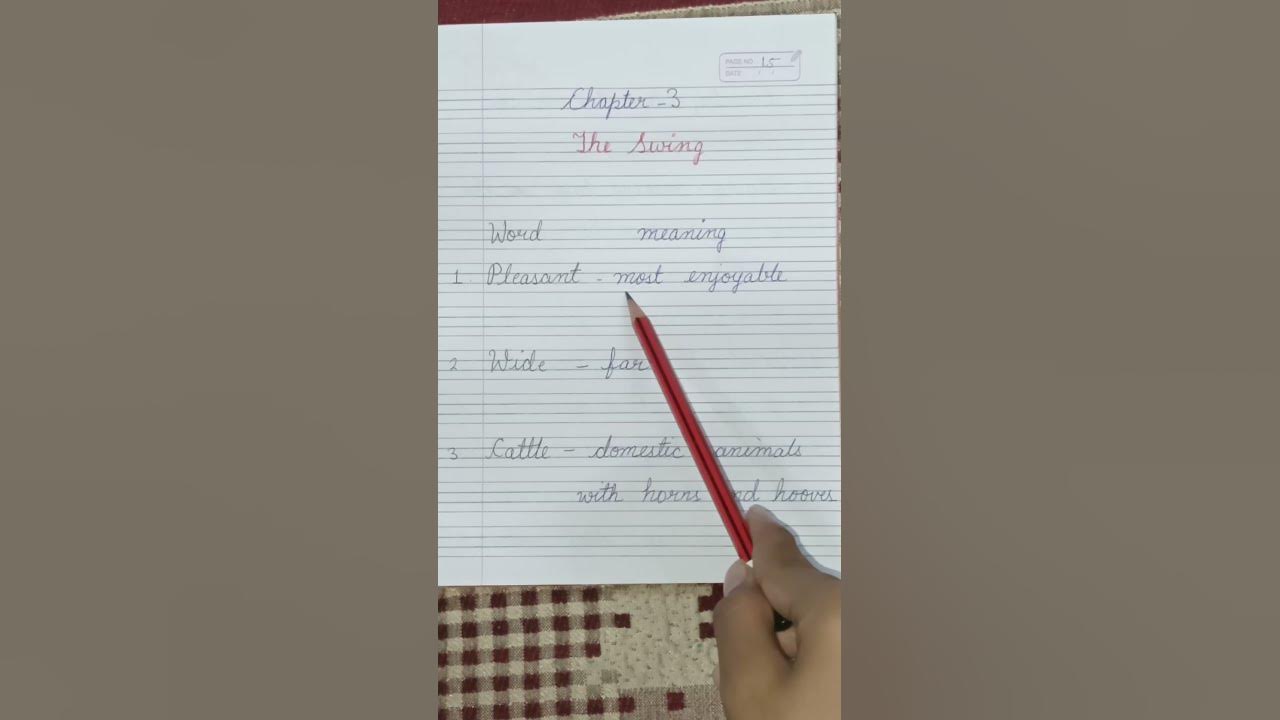 PAGE NO. 15
DATE / /
Chapter-3
The Swing
Word meaning
1. Pleasant - most enjoyable
2 Wide - far
3 Cattle - domestic animals
with horns and hooves